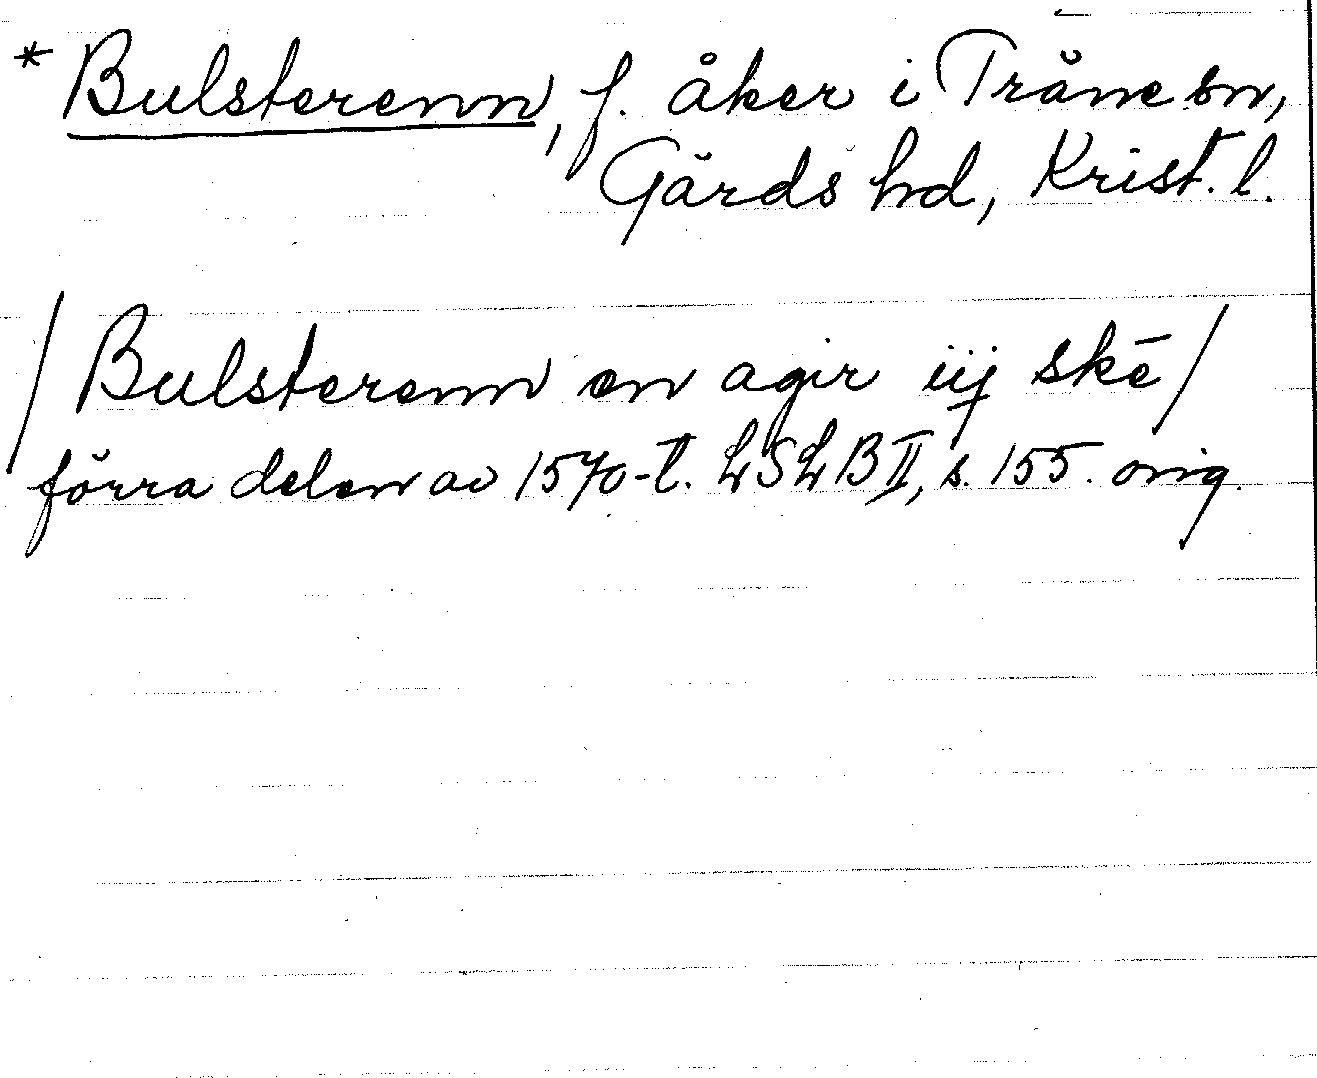 * Bulsterenn, f. åker i Träne sn,
Gärds hd, Krist. l.
/ Bulsterenn en agir iij skē /
förra delen av 1570-t. LSLB II, s. 155. orig.